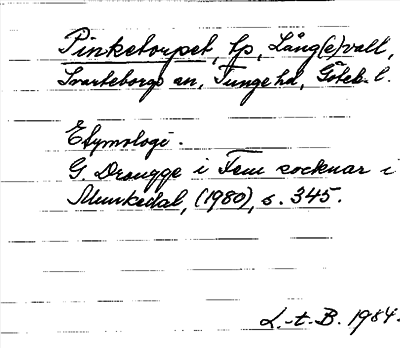 Pinketorpet, lp, Lång(e)vall,
Svarteborgs sn, Tunge hd, Göteb. l.
Etymologi.
G. Drougge i Fem socknar i
Munkedal, (1980), s. 345.
L.-t. B. 1984.